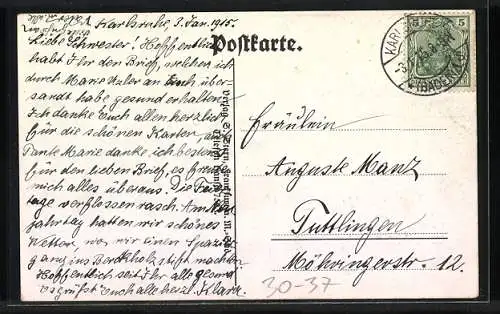 Karlsruhe, 3. Jan. 1915.
Liebe Schwester! Hoffentlich
habt Ihr den Brief, welchen ich
durch Marie an Euch über-
sandt habe gesund erhalten.
Ich danke Euch allen herzlich
für die schönen Karten, auch
Tante Marie danke ich bestens
für den lieben Brief, es freute
mich alles überaus. Die Fest-
tage verflossen rasch. Am Neu-
jahrtag hatten wir schönes
Wetter, wo wir einen Spazier-
gang ins machten.
Hoffentlich seit Ihr alle gesund
Es grüßt Euch alle herzl. Klara.
Postkarte.
5 5
KARLSRUHE
(BADEN)
Fräulein
Auguste Manz
Tuttlingen
Möhringerstr. 12.
30-37